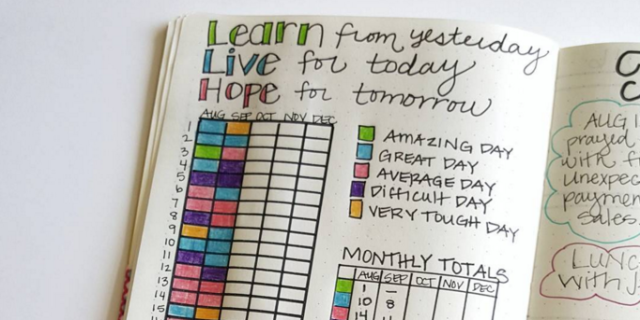 Learn from yesterday
Live for today
Hope for tomorrow
AUG SEP OCT NOV DEC
1
2
3
4
5
6
7
8
9
10
11
12
13
14
15
AMAZING DAY
GREAT DAY
AVERAGE DAY
DIFFICULT DAY
VERY TOUGH DAY
MONTHLY TOTALS
AUG SEP OCT NOV DEC
1 –
10 8
14
AUG 1
prayed
with f
unexpec
paymen
sales
LUNC
with J